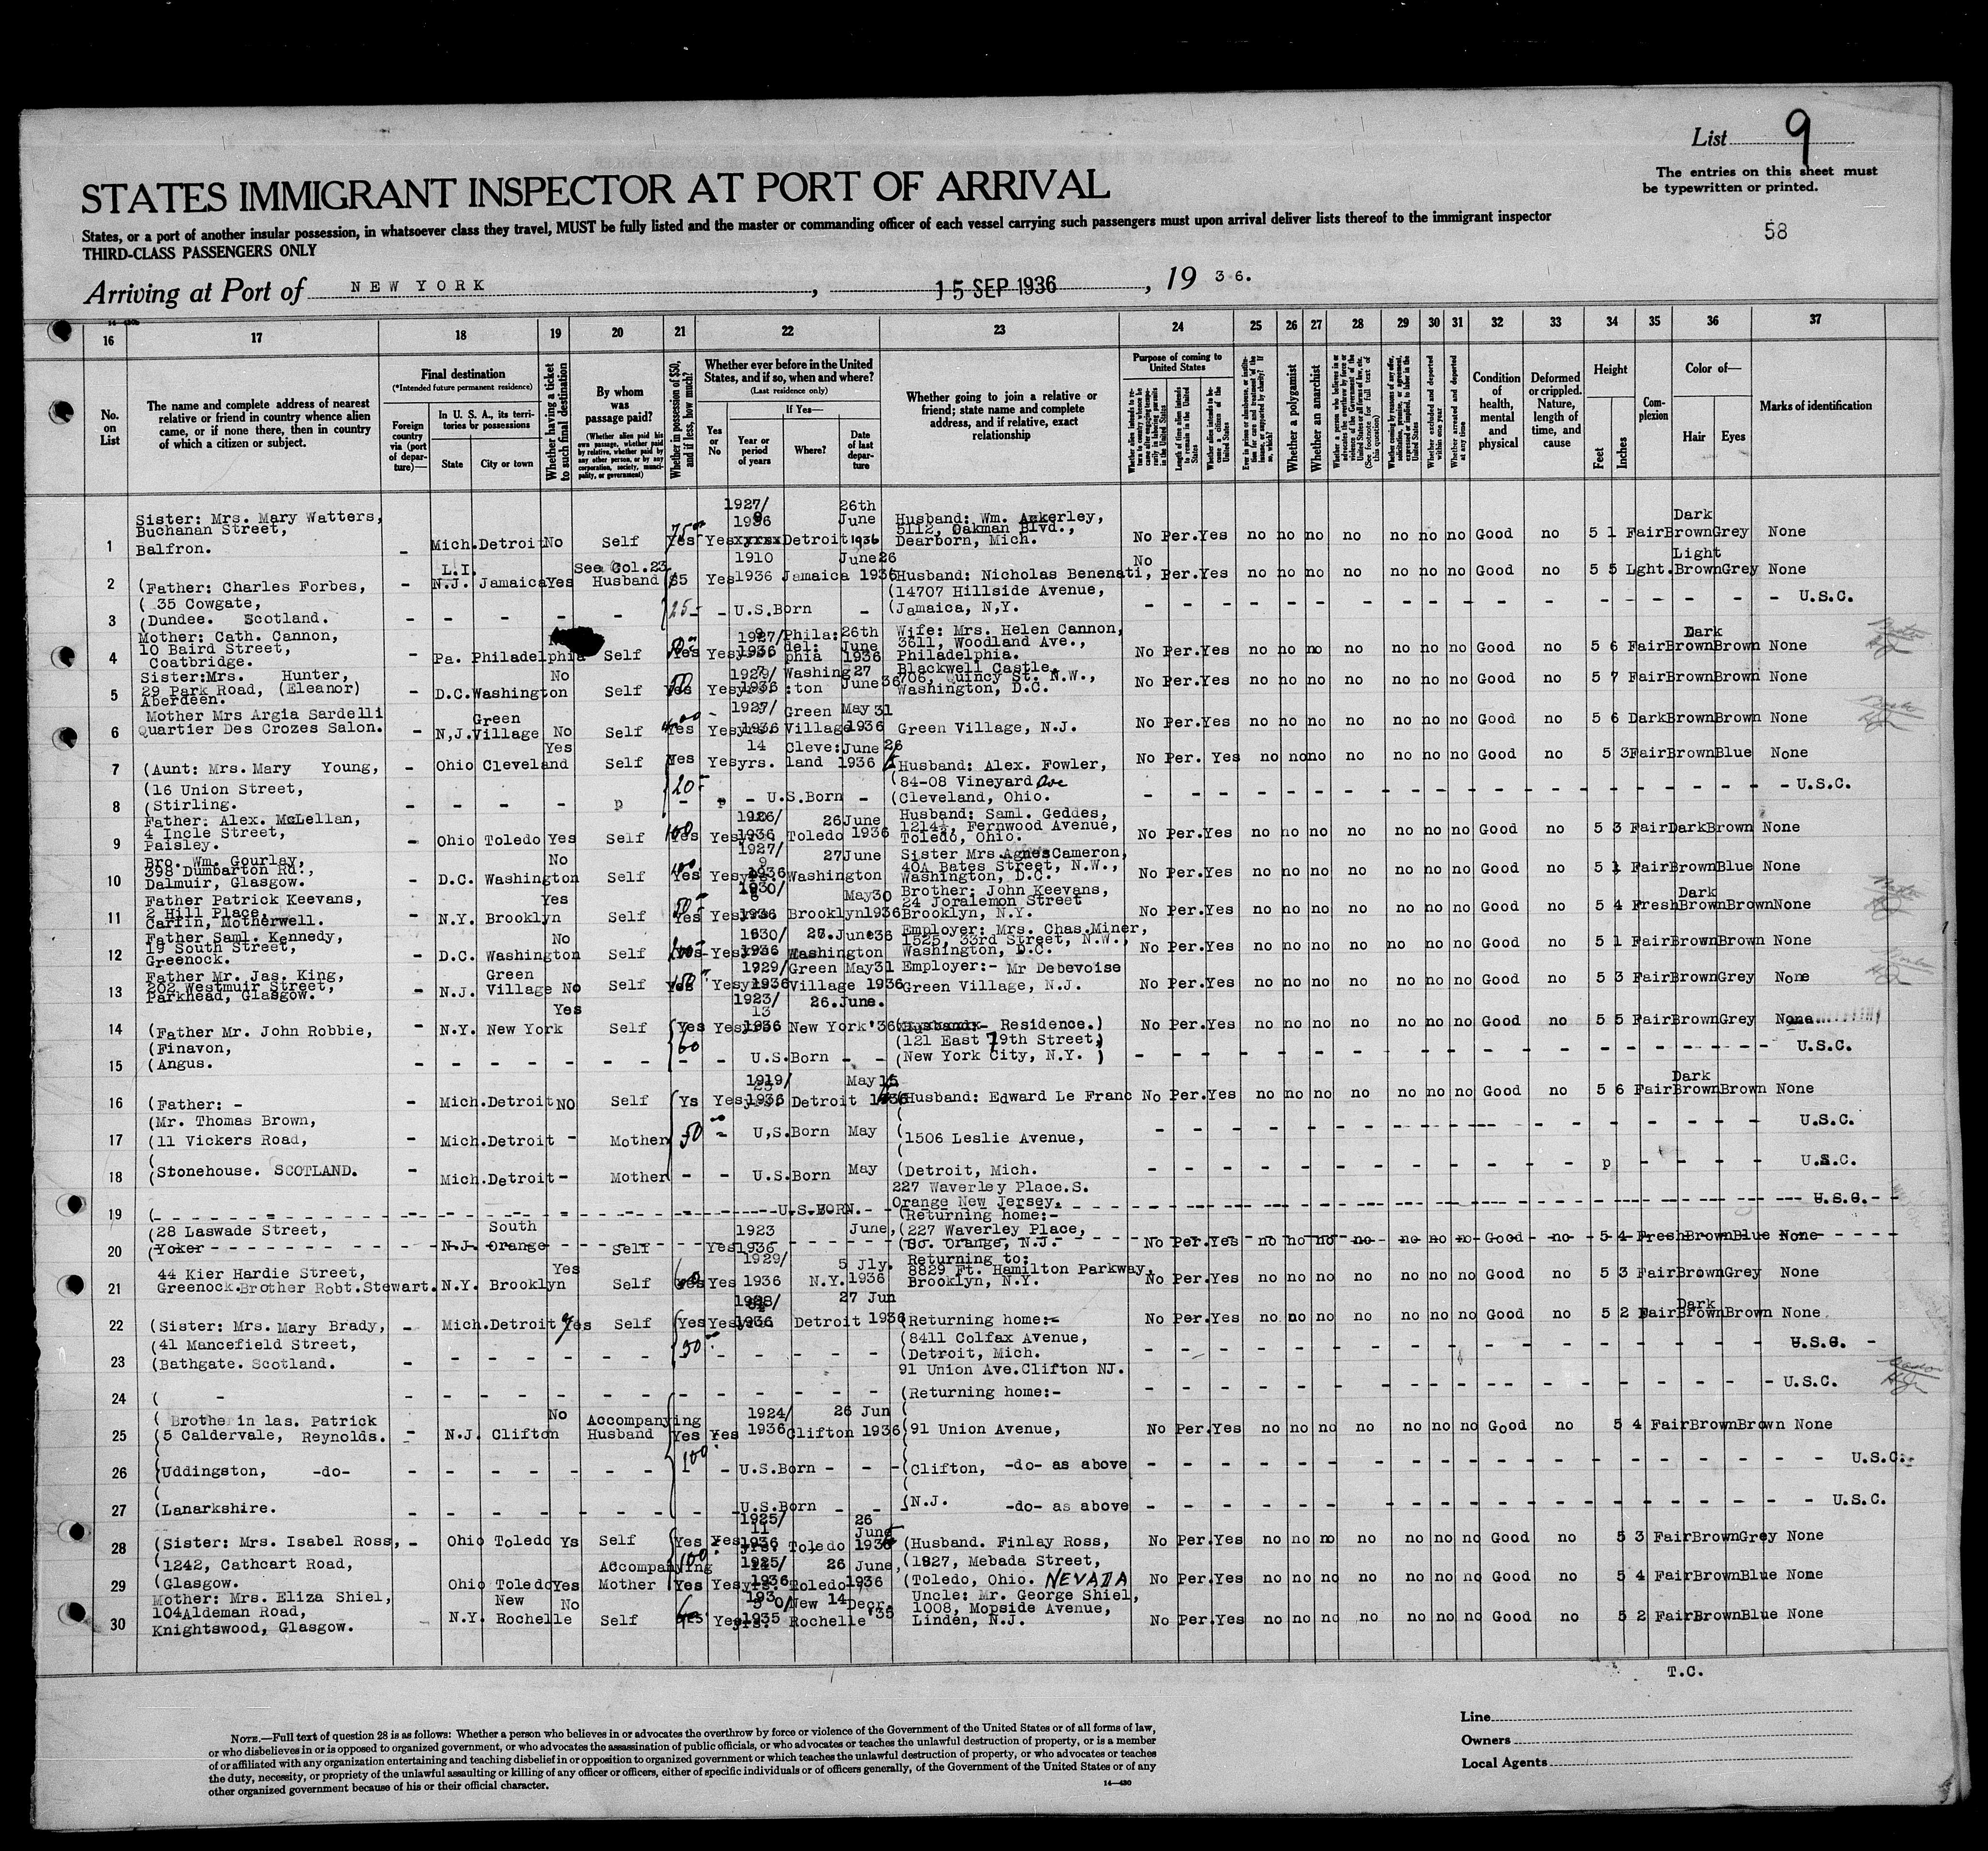 List 9
The entries on this sheet must
be typewritten or printed.
58
STATES IMMIGRANT INSPECTOR AT PORT OF ARRIVAL
States, or a port of another insular possession, in whatsoever class they travel, MUST be fully listed and the master or commanding officer of each vessel carrying such passengers must upon arrival deliver lists thereof to the immigrant inspector
THIRD-CLASS PASSENGERS ONLY
Arriving at Port of NEW YORK, 15 SEP 1936, 19 36.
16 17 18 19 20 21 22 23 24 25 26 27 28 29 30 31 32 33 34 35 36 37
No. on List
The name and complete address of nearest relative or friend in country whence alien came, or if none there, then in country of which a citizen or subject.
Final destination
(*Intended future permanent residence)
Foreign country via (port of departure)—
In U. S. A., its territories or possessions
State
City or town
Whether having a ticket to such final destination
By whom was passage paid?
(Whether alien paid his own passage, whether paid by relative, whether paid by any other person, or by any corporation, society, municipality, or government)
Whether in possession of $50, and if less, how much?
Whether ever before in the United States, and if so, when and where?
(Last residence only)
Yes or No
If Yes—
Year or period of years
Where?
Date of last departure
Whether going to join a relative or friend; state name and complete address, and if relative, exact relationship
Purpose of coming to United States
Whether a polygamist
Whether an anarchist
Condition of health, mental and physical
Deformed or crippled. Nature, length of time, and cause
Height
Feet
Inches
Complexion
Color of—
Hair
Eyes
Marks of identification
1 Sister: Mrs. Mary Watters, Buchanan Street, Balfron. - Mich. Detroit No Self Yes 75 Yes 1927/ 1936 Detroit 26th June 1936 Husband: Wm. Ankerley, 5112, Oakman Blvd., Dearborn, Mich. No Per. Yes no no no no no no no Good no 5 1 Fair Dark Brown Grey None
2 (Father: Charles Forbes, - L.I. N.J. Jamaica Yes See Col.23. Husband $5 Yes 1910 1936 Jamaica June 26 1936 Husband: Nicholas Benenati, No Per. Yes no no no no no no no Good no 5 5 Lght. Light Brown Grey None
( 35 Cowgate, (14707 Hillside Avenue,
3 (Dundee. Scotland. - - - - - 25 - U.S.Born - (Jamaica, N,Y. U.S.C.
4 Mother: Cath. Cannon, 10 Baird Street, Coatbridge. - Pa. Philadelphia Self Yes Yes 1927/ 1936 Phila:del:phia 26th June 1936 Wife: Mrs. Helen Cannon, 3611, Woodland Ave., Philadelphia. No Per. Yes no no no no no no no Good no 5 6 Fair Dark Brown Brown None
5 Sister:Mrs. Hunter, 29 Park Road, (Eleanor) Aberdeen. - D.C. Washington No Self Yes 50 Yes 1929/ 1936 Washing:ton 27 June 36 Blackwell Castle, 706, Quincy St. N.W., Washington, D.C. No Per. Yes no no no no no no no Good no 5 7 Fair Brown Brown None
6 Mother Mrs Argia Sardelli Quartier Des Crozes Salon. - N,J. Green Village No Self Yes Yes 1927/ 1936 Green Village May 31 1936 Green Village, N.J. No Per. Yes no no no no no no no Good no 5 6 Dark Brown Brown None
7 (Aunt: Mrs. Mary Young, - Ohio Cleveland Yes Self Yes Yes 14 yrs. Cleve:land June 26 1936 Husband: Alex. Fowler, No Per. Yes no no no no no no no Good no 5 3 Fair Brown Blue None
(16 Union Street, 20 (84-08 Vineyard Ave
8 (Stirling. - - - - p - p - U.S.Born - (Cleveland, Ohio. - U.S.C.
9 Father: Alex. McLellan, 4 Incle Street, Paisley. - Ohio Toledo Yes Self Yes 100 Yes 1926/ 1936 Toledo 26 June 1936 Husband: Saml. Geddes, 1214½, Fernwood Avenue, Toledo, Ohio. No Per. Yes no no no no no no no Good no 5 3 Fair Dark Brown None
10 Bro. Wm. Gourlay, 398 Dumbarton Rd., Dalmuir, Glasgow. - D.C. Washington No Self Yes 100 Yes 1927/ 9 yrs. 1936 Washington 27 June Sister Mrs. Agnes Cameron, 404 Bates Street, N.W., Washington, D.C. No Per. Yes no no no no no no no Good no 5 1 Fair Brown Blue None
11 Father Patrick Keevans, 2 Hill Place, Carfin, Motherwell. - N.Y. Brooklyn Yes Self Yes 50 Yes 1930/ 1936 Brooklyn May 30 1936 Brother: John Keevans, 24 Joralemon Street Brooklyn, N.Y. No Per. Yes no no no no no no no Good no 5 4 Fresh Dark Brown Brown None
12 Father Saml. Kennedy, 19 South Street, Greenock. - D.C. Washington No Self Yes Yes 1930/ 1936 Washington June '36 Employer: Mrs. Chas.Miner, 1525, 33rd Street, N.W., Washington, D.C. No Per. Yes no no no no no no no Good no 5 1 Fair Brown Brown None
13 Father Mr. Jas. King, 202 Westmuir Street, Parkhead, Glasgow. - N.J. Green Village No Self Yes 150 Yes 1929/ 1936 Green Village May 31 1936 Employer:- Mr Debevoise Green Village, N.J. No Per. Yes no no no no no no no Good no 5 3 Fair Brown Grey None
14 (Father Mr. John Robbie, - N.Y. New York Yes Self Yes Yes 1923/ 13 1936 New York 26.June. '36 Residence.) No Per. Yes no no no no no no no Good no 5 5 Fair Brown Grey None
(Finavon, 60 (121 East 79th Street,)
15 (Angus. - - - - - - U.S.Born - - (New York City, N.Y. ) U.S.C.
16 (Father: - - Mich. Detroit NO Self Ys Yes 1919/ 1936 Detroit May 15 1936 (Husband: Edward Le Franc No Per. Yes no no no no no no no Good no 5 6 Fair Dark Brown Brown None
(Mr. Thomas Brown,
17 (11 Vickers Road, - Mich. Detroit - Mother 50 - U,S.Born May (1506 Leslie Avenue, U.S.C.
18 (Stonehouse. SCOTLAND. - Mich. Detroit - Mother - - U.S.Born May (Detroit, Mich. p U.S.C.
227 Waverley Place.S.
19 ( - - - U.S.BORN. Orange New Jersey. U.S.C.
(28 Laswade Street, (Returning home:-
20 (Yoker - N.J. South Orange Self Yes 1923 1936 June, (227 Waverley Place, (So. Orange, N.J. No Per. Yes no no no no no no no Good no 5 4 Fresh Brown Blue None
21 44 Kier Hardie Street, Greenock.Brother Robt.Stewart. N.Y. Brooklyn Yes Self Yes 60 Yes 1929/ 1936 N.Y. 5 Jly. 1936 Returning to: 8829 Ft. Hamilton Parkway, Brooklyn, N.Y. No Per. Yes no no no no no no no Good no 5 3 Fair Brown Grey None
22 (Sister: Mrs. Mary Brady, - Mich. Detroit Yes Self Yes Yes 1928/ 1936 Detroit 27 Jun 1936 (Returning home:- No Per. Yes no no no no no no no Good no 5 2 Fair Dark Brown Brown None
(41 Mancefield Street, 50 (8411 Colfax Avenue,
23 (Bathgate. Scotland. - - - - - - - - - (Detroit, Mich. U.S.C.
91 Union Ave.Clifton NJ.
24 ( - - - - - - - - - - (Returning home:- - U.S.C.
25 ( Brothe in las. Patrick (5 Caldervale, Reynolds. - N.J. Clifton No Accompanying Husband Yes Yes 1924/ 1936 Clifton 26 Jun 1936 (91 Union Avenue, No Per. Yes no no no no no no no Good no 5 4 Fair Brown Brown None
26 (Uddingston, -do- - - - - - 100 - U.S.Born - - - (Clifton, -do- as above U.S.C.
27 (Lanarkshire. - - - - - - U.S.Born - - (N.J. -do- as above U.S.C.
28 (Sister: Mrs. Isabel Ross, - Ohio Toledo Ys Self Yes Yes 1925/ 11 yrs. 1936 Toledo 26 June 1936 (Husband. Finlay Ross, No Per. Yes no no no no no no no Good no 5 3 Fair Brown Grey None
(1242, Cathcart Road, 100 (1827, Mebada Street,
29 (Glasgow. Ohio Toledo Yes Accompanying Mother Yes Yes 1925/ 1936 Toledo 26 June, 1936 (Toledo, Ohio. NEVADA No Per. Yes no no no no no no no Good no 5 4 Fair Brown Blue None
30 Mother: Mrs. Eliza Shiel, 104 Aldeman Road, Knightswood, Glasgow. N.Y. New Rochelle No Self Yes Yes 1930/ 5 yrs. 1935 New Rochelle 14 Decr. '35 Uncle: Mr. George Shiel, 1008, Mopside Avenue, Linden, N.J. No Per. Yes no no no no no no no Good no 5 2 Fair Brown Blue None
T.C.
NOTE.—Full text of question 28 is as follows: Whether a person who believes in or advocates the overthrow by force or violence of the Government of the United States or of all forms of law,
or who disbelieves in or is opposed to organized government, or who advocates the assassination of public officials, or who advocates or teaches the unlawful destruction of property, or is a member
of or affiliated with any organization entertaining and teaching disbelief in or opposition to organized government or which teaches the unlawful destruction of property, or who advocates or teaches
the duty, necessity, or propriety of the unlawful assaulting or killing of any officer or officers, either of specific individuals or of officers generally, of the Government of the United States or of any
other organized government because of his or their official character.
14—430
Line
Owners
Local Agents